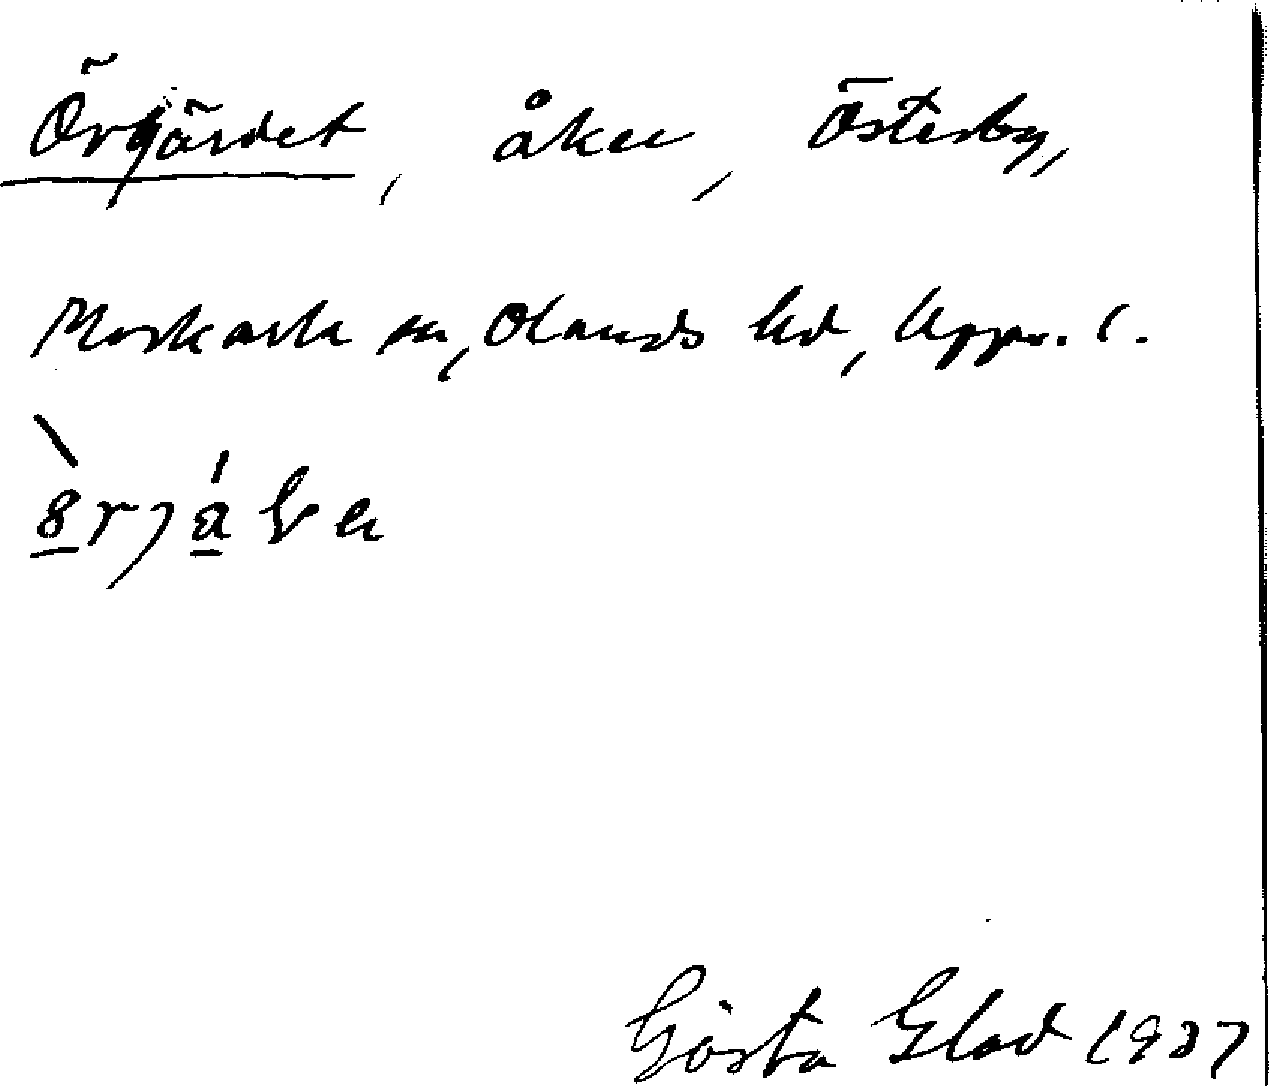 Örgärdet, åker, Österby,
Morkarla sn, Olands hd, Upps. l.
Gösta Glad 1937